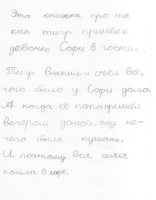 Эта книжка про то
как тигр пришёл к
девочке Софи в гости.
Тигр выпил и съел всё,
что было у Софи дома.
А когда её папа пришёл
вечером домой, ему не-
чего было кушать.
И поэтому вся семья
пошла в кафе.